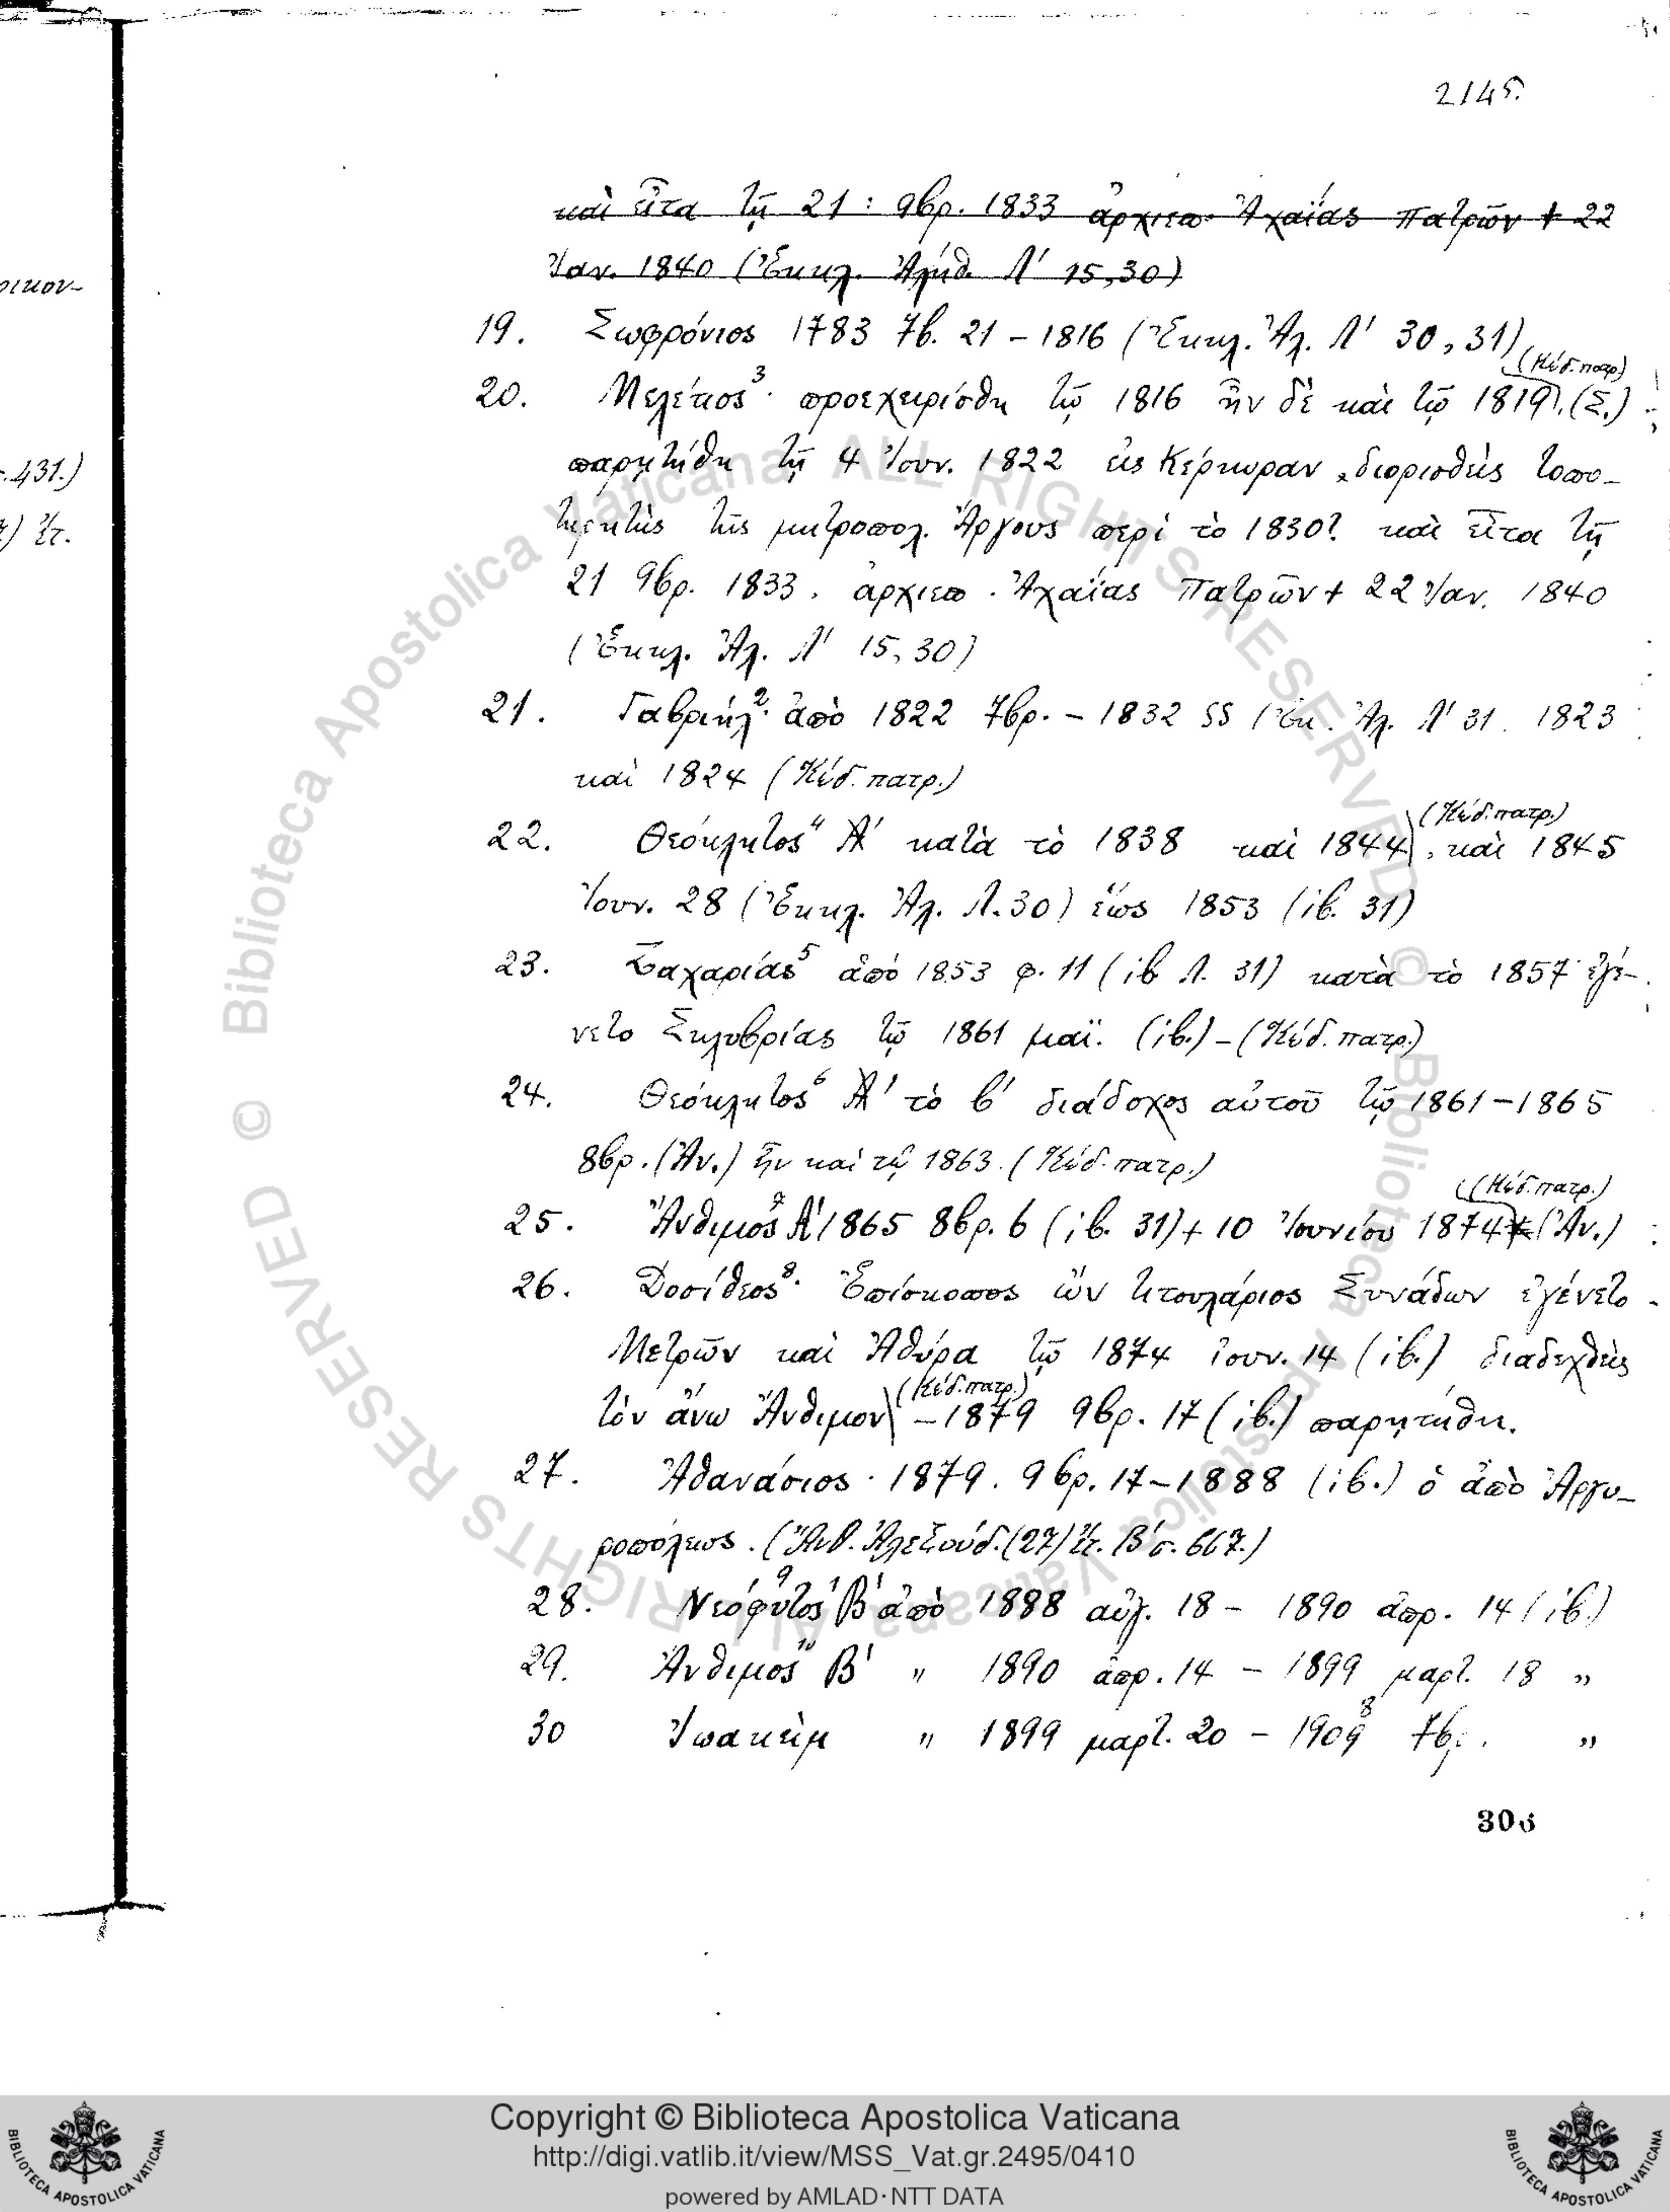 2145.
καὶ εἶτα τῇ 21: 9βρ. 1833 ἀρχιεπ. Ἀχαΐας Πατρῶν + 22
Ἰαν. 1840 (Ἐκκλ. Ἀλήθ. Λ' 15,30)
19. Σωφρόνιος 1783 7β. 21 – 1816 (Ἐκκλ. Ἀλ. Λ' 30, 31)
(Κώδ. πατρ.)
20. Μελέτιος³· προεχειρίσθη τῷ 1816 ἦν δὲ καὶ τῷ 1819), (Σ.)
παρῃτήθη τῇ 4 Ἰουν. 1822 εἰς Κέρκυραν, διορισθεὶς τοπο-
τηρητὴς τῆς μητροπολ. Ἄργους περὶ τὸ 1830? καὶ εἶτα τῇ
21 9βρ. 1833. ἀρχιεπ. Ἀχαΐας Πατρῶν + 22 Ἰαν. 1840
(Ἐκκλ. Ἀλ. Λ' 15, 30)
21. Γαβριήλ²· ἀπὸ 1822 7βρ. – 1832 SS (Ἐκ. Ἀλ. Λ' 31. 1823
καὶ 1824 (Κώδ. πατρ.)
(Κώδ. πατρ.)
22. Θεόκλητος⁴ Α' κατὰ τὸ 1838 καὶ 1844), καὶ 1845
Ἰουν. 28 (Ἐκκλ. Ἀλ. Λ. 30) ἕως 1853 (ἰβ. 31)
23. Ζαχαρίας⁵ ἀπό 1853 φ. 11 (ἰβ Λ. 31) κατὰ τὸ 1857 ἐγέ-
νετο Σηλυβρίας τῷ 1861 μαΐ. (ἰβ.) – (Κώδ. πατρ.)
24. Θεόκλητος⁶ Α' τὸ β' διάδοχος αὐτοῦ τῷ 1861 – 1865
8βρ. (Ἀν.) ἦν καὶ τῷ 1863. (Κώδ. πατρ.)
(Κώδ. πατρ.)
25. Ἄνθιμος⁷ Α' 1865 8βρ. 6 (ἰβ. 31) + 10 Ἰουνίου 1874 (Ἀν.)
26. Δοσίθεος⁸· Ἐπίσκοπος ὢν τιτουλάριος Συνάδων ἐγένετο
Μετρῶν καὶ Ἀθύρα τῷ 1874 ἰουν. 14 (ἰβ.) διαδεχθεὶς
(Κώδ. πατρ.)
τὸν ἄνω Ἄνθιμον – 1879 9βρ. 17 (ἰβ.) παρῃτήθη.
27. Ἀθανάσιος· 1879. 9βρ. 17 – 1888 (ἰβ.) ὁ ἀπὸ Ἀργυ-
ροπόλεως. (Ἀνθ. Ἀλεξούδ. (27) Ἔτ. Β' σ. 667.)
28. Νεόφυτος⁹ Β' ἀπὸ 1888 αὐγ. 18 – 1890 ἀπρ. 14 (ἰβ.)
29. Ἄνθιμος¹⁰ Β' „ 1890 ἀπρ. 14 – 1899 μαρτ. 18 „
30 Ἰωακεὶμ „ 1899 μαρτ. 20 – 1909 8 7βρ. „
306
οικον-
431.)
Ἔτ.
© Biblioteca Apostolica Vaticana ALL RIGHTS RESERVED
© Biblioteca Apostolica Vaticana ALL RIGHTS RESERVED
BIBLIOTECA APOSTOLICA VATICANA
Copyright © Biblioteca Apostolica Vaticana
http://digi.vatlib.it/view/MSS_Vat.gr.2495/0410
powered by AMLAD·NTT DATA
BIBLIOTECA APOSTOLICA VATICANA